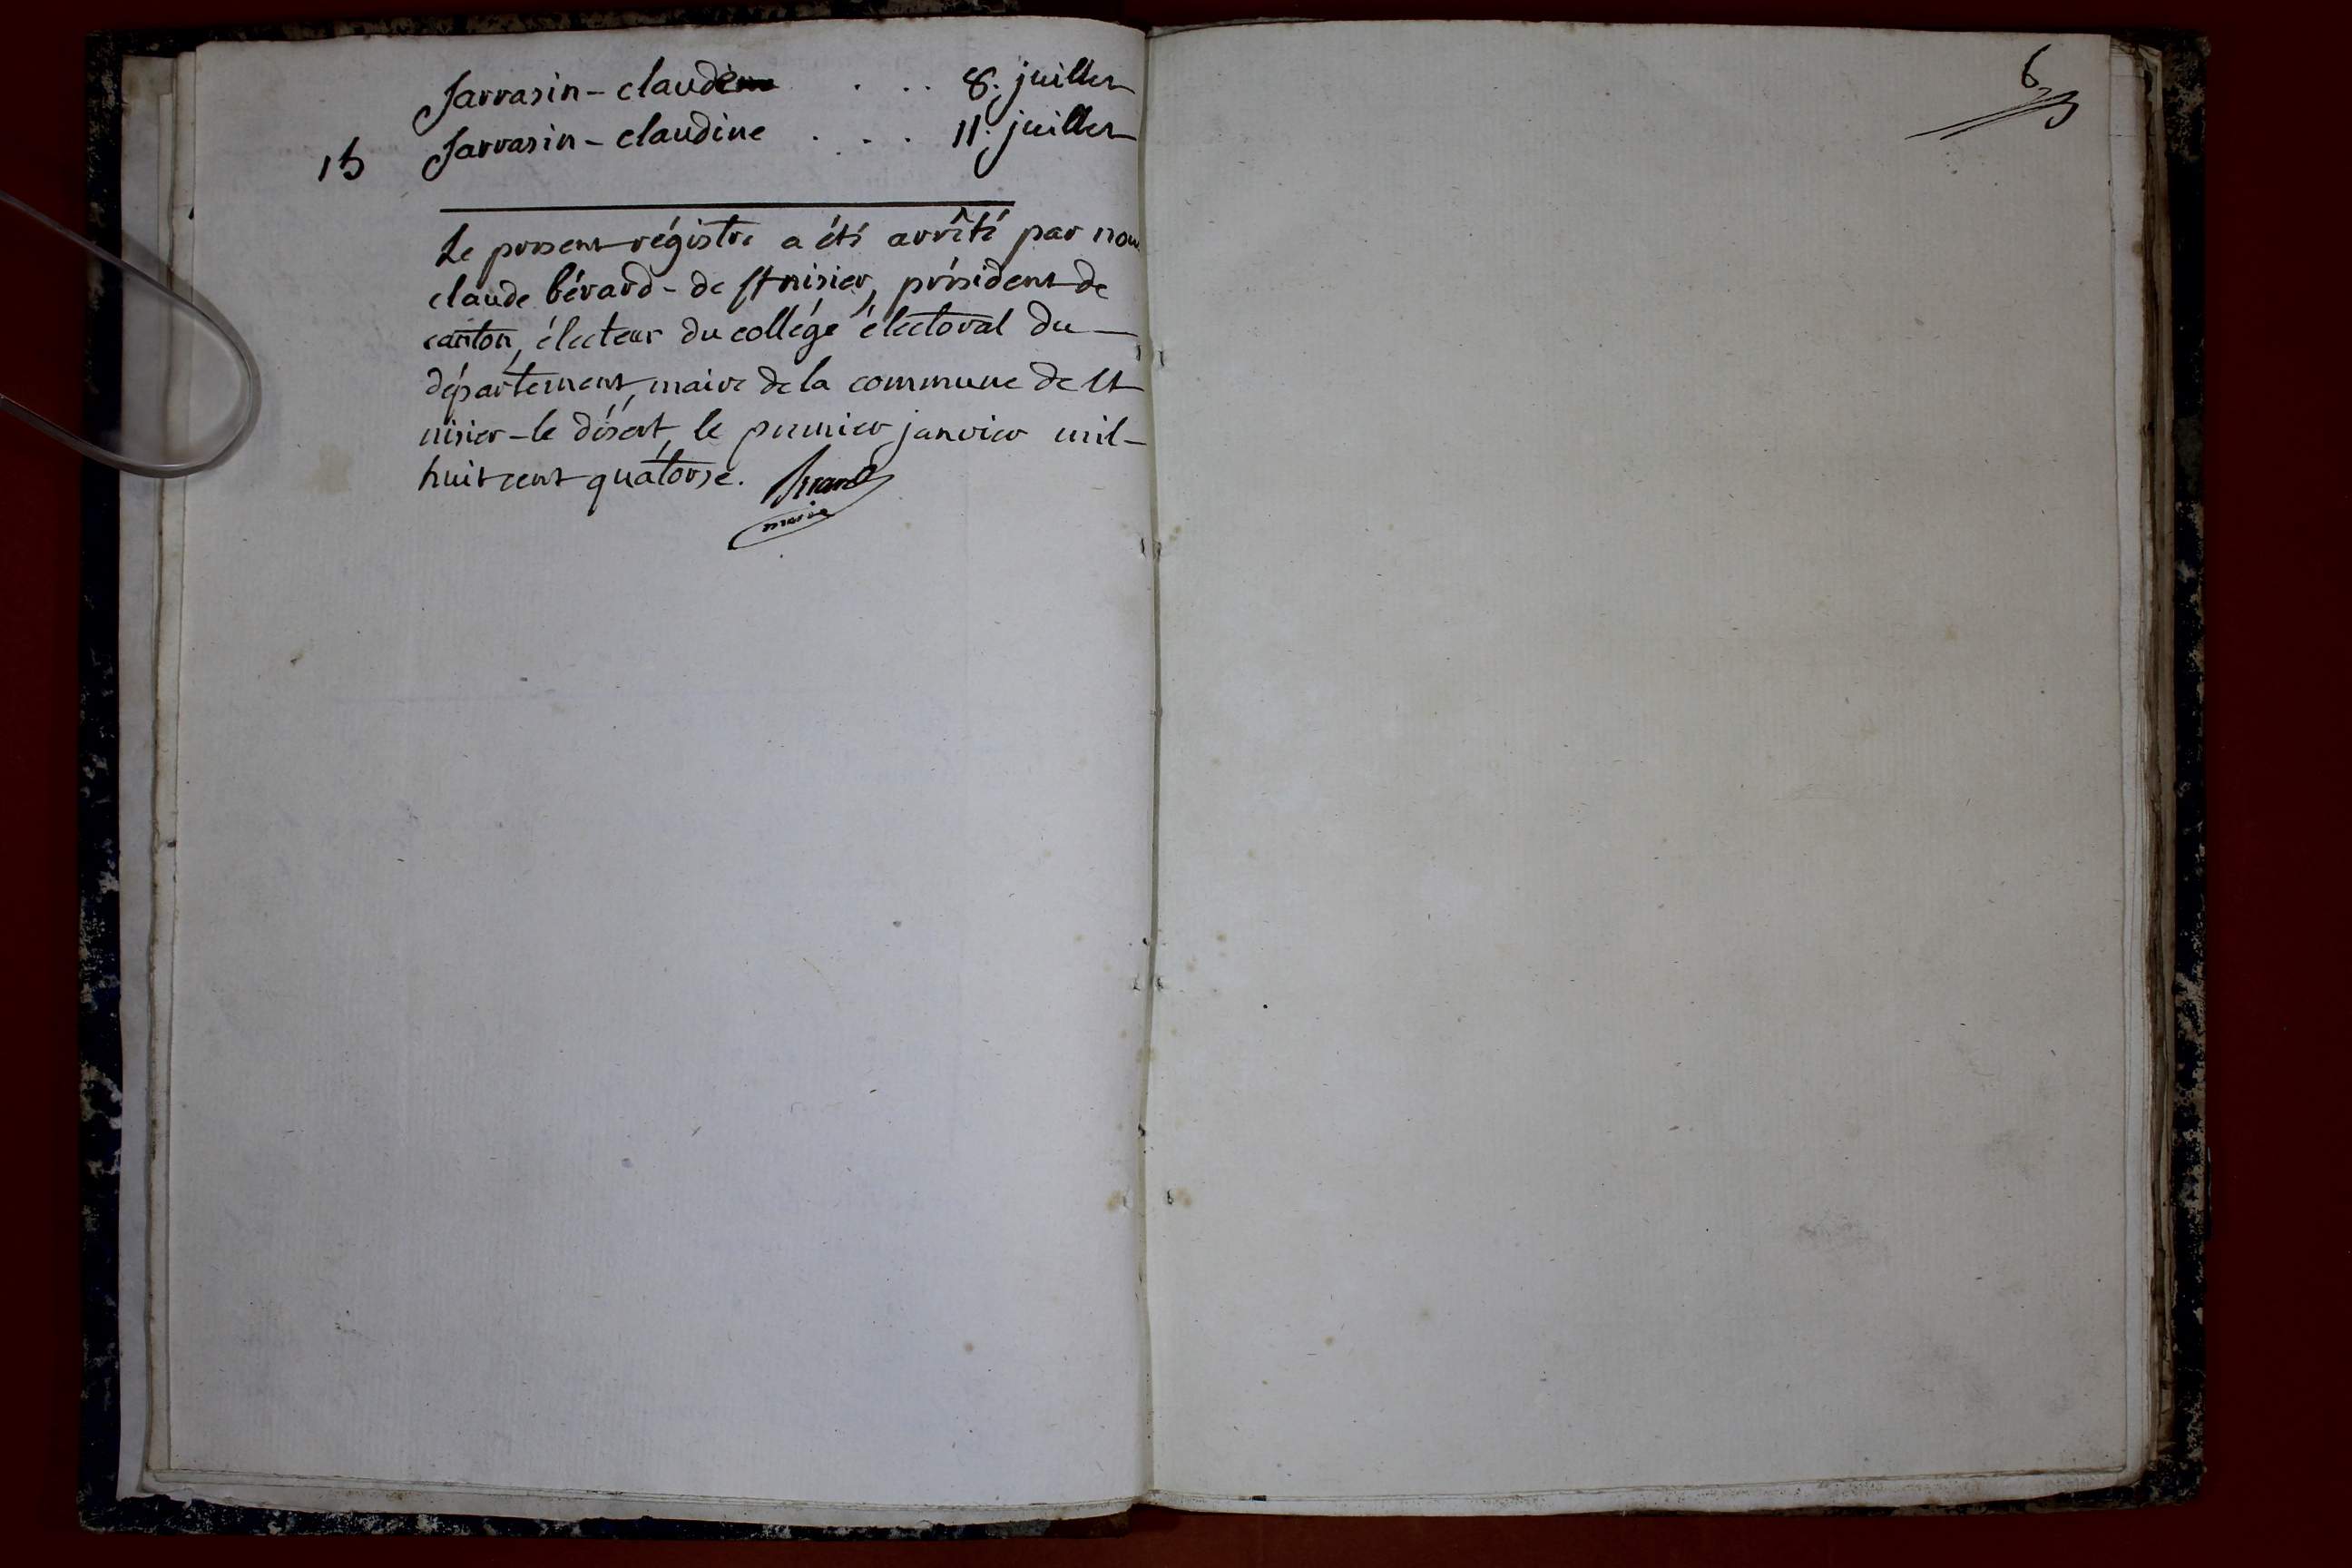 Sarrasin - claude . . . 8. juillet
15 Sarrasin - claudine . . . 11. juillet
Le present régistre a été arrêté par nous
claude bérard - de St nisier, président de
canton, électeur du collége électoral du
département, maire de la commune de St
nisier - le désert, le premier janvier mil-
huit cent quatorse. Bérard
maire
6